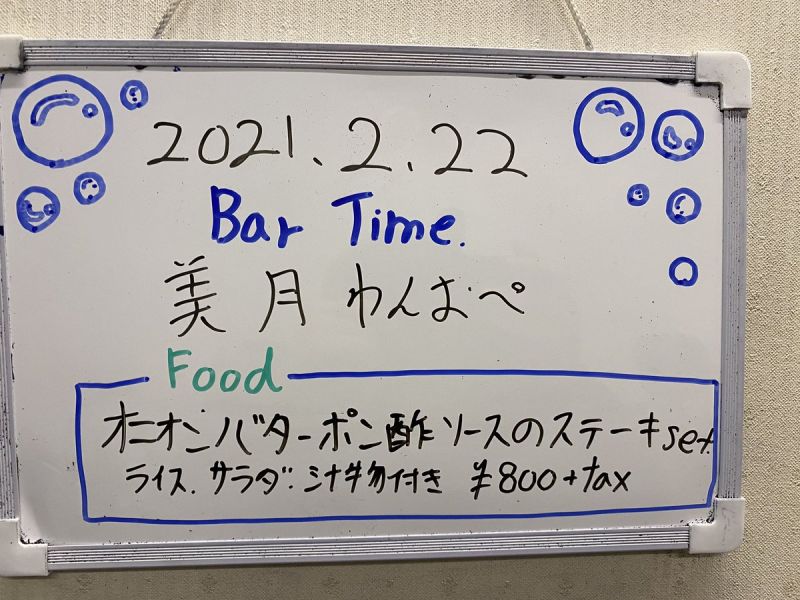 2021.2.22
Bar Time.
美月わんおぺ
Food
オニオンバターポン酢ソースのステーキset.
ライス.サラダ.汁物付き ¥800+tax